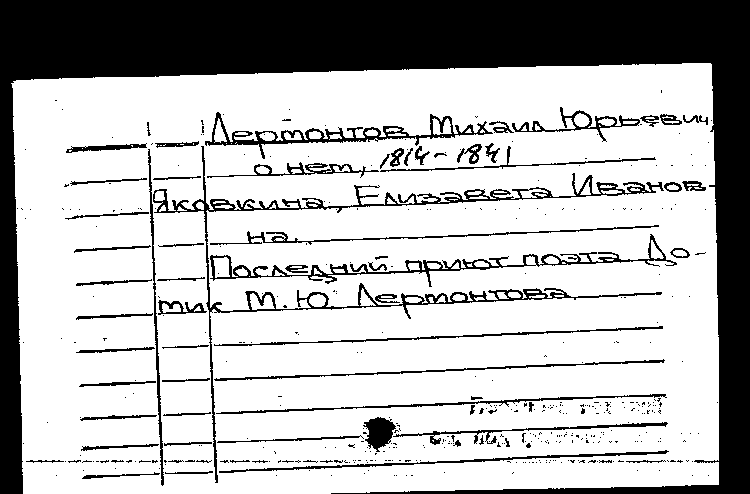 Лермонтов, Михаил Юрьевич,
о нем, 1814-1841
Яковкина, Елизавета Иванов-
на.
Последний приют поэта До-
мик М.Ю. Лермонтова